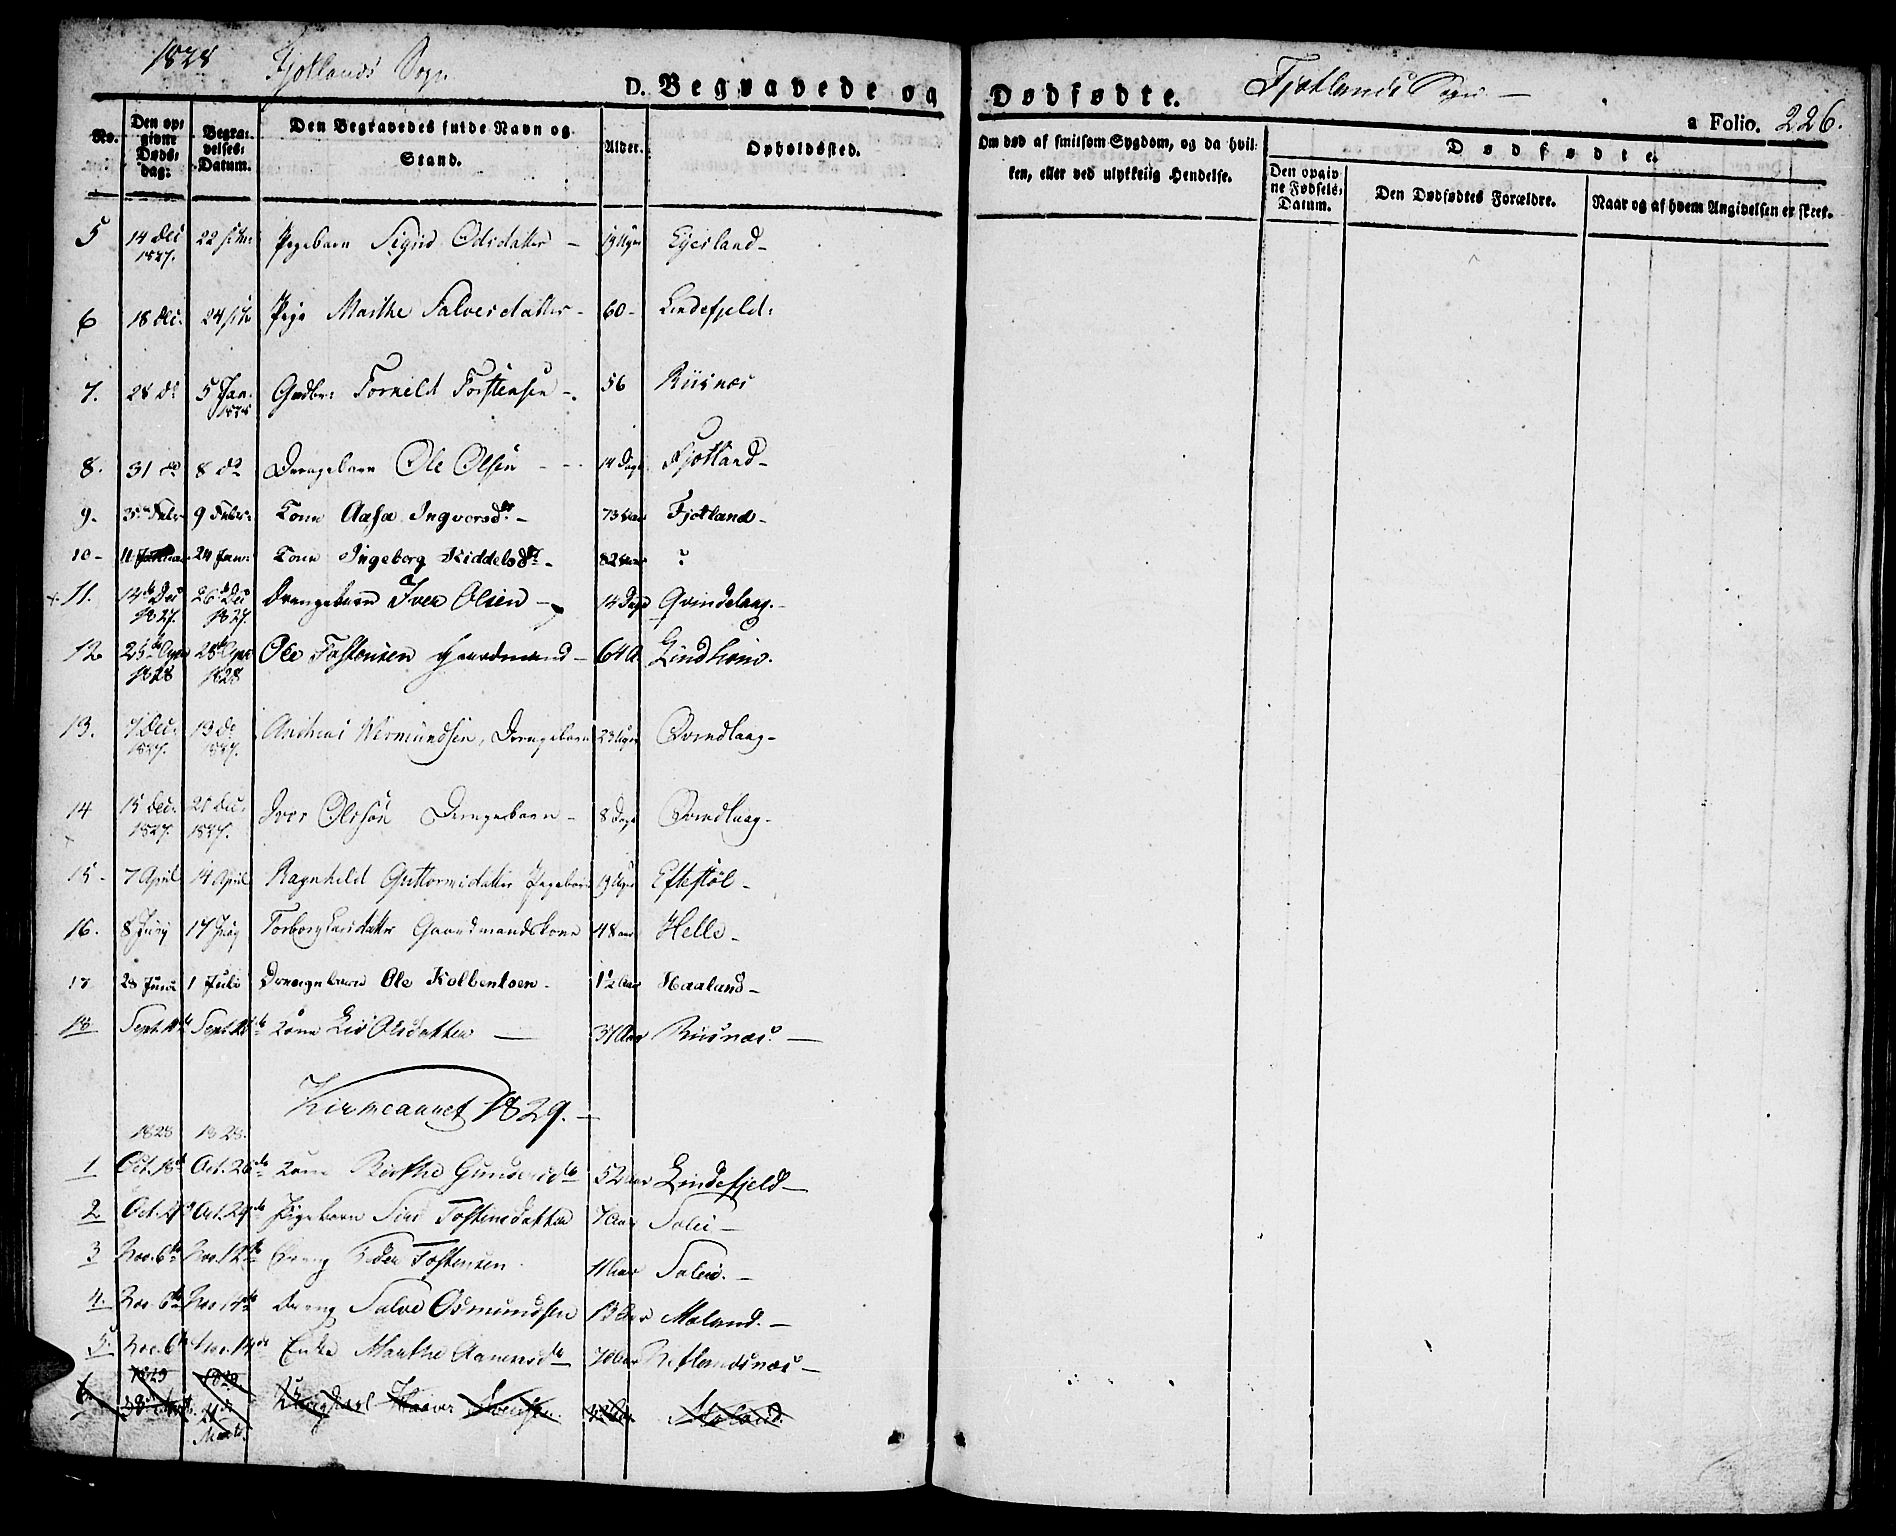 1828 Fjotlands Sogn
D. Begravede og Dødfødte. Fjotlands Sogn —
a Folio. 226.
No. | Den opgivne Døds-dag: | Begravelses-Datum. | Den Begravedes fulde Navn og Stand. | Alder. | Opholdssted. | Om død af smitsom Sygdom, og da hvilken, eller ved ulykkelig Hendelse. | Dødfødte.
Den opgivne Fødsels-Datum. | Den Dødfødtes Forældre. | Naar og af hvem Angivelsen er skeet.
5 14 Dec 1827. 22 Pigebarn Sigrid Odsdatter — 19 Uger Eyesland —
6 18 Dec. 24 Pige Marthe Salvesdatter — 60 — Lindefjeld.
7. 28 do 5 Jan. 1828 Gaardbr: Torkild Torstensen —. 56 Riisnæs
8. 31 do 8 do Drengebarn Ole Olsen - - - 14 Dage Fjotland —
9. 3 Febr 9 Febr: Kone Aasa Ingvorsdtr — 73 Aar Fjotland —
10 — 11 24 Jan: Kone Ingeborg Kiddelsdtr — 82 Aar ?
11. 14de Dec 1827. 26de Dec 1827. Drengebarn Iver Olsen — 14 Dage Qvindelaag. —
12 25de 1828 28de 1828 Ole Tostensen Gaardmand — 64 A Lindhom.
13. 7 Dec. 1827. 13 De 1827. Andreas Wermundsen, Drengebarn 23 Uger Qvindlaag —
14 15 Dec. 1827. 21 Dec. 1827. Iver Olsøn Drengebarn — 8 Dage Qvindlaag —
15 — 7 April 14 April Ragnhild Guttormsdatter Pigebarn 19 Uger Eftestøl —
16. 8 Juny 17 Juny Torborg Larsdatter Gaardmandskone 48 aar Helle —
17 28 Juni 1 Juli Drengebarn Ole Kolbentsen — 1½ Aar Haaland —
18 Sept. Sept. Kone Liv Olsdatter — 37 Aar Riisnæs. —
Kirkeaaret 1829. —
1828 1828.
1 Oct. 18de Oct. 26de Kone Birthe Gundersdtr 52 aar Lindefjeld —
2 Oct. Oct. 29de Pigebarn Siri Tostensdatter 7 Aar Solei —
3 Nov. 6te Nov. 12te Dreng Peder Tostensen 11 aar Solei. —
4. Nov. 6te Nov. 14de Dreng Salve Osmundsen 13 Aar Moland. —
5. Nov. 6te Nov. 14de Enke Marthe Aanensdtr 70 Aar Netlandsnæs —
6 1829 1829 Marts. Ungkarl Haaver Svendsen. Moland.